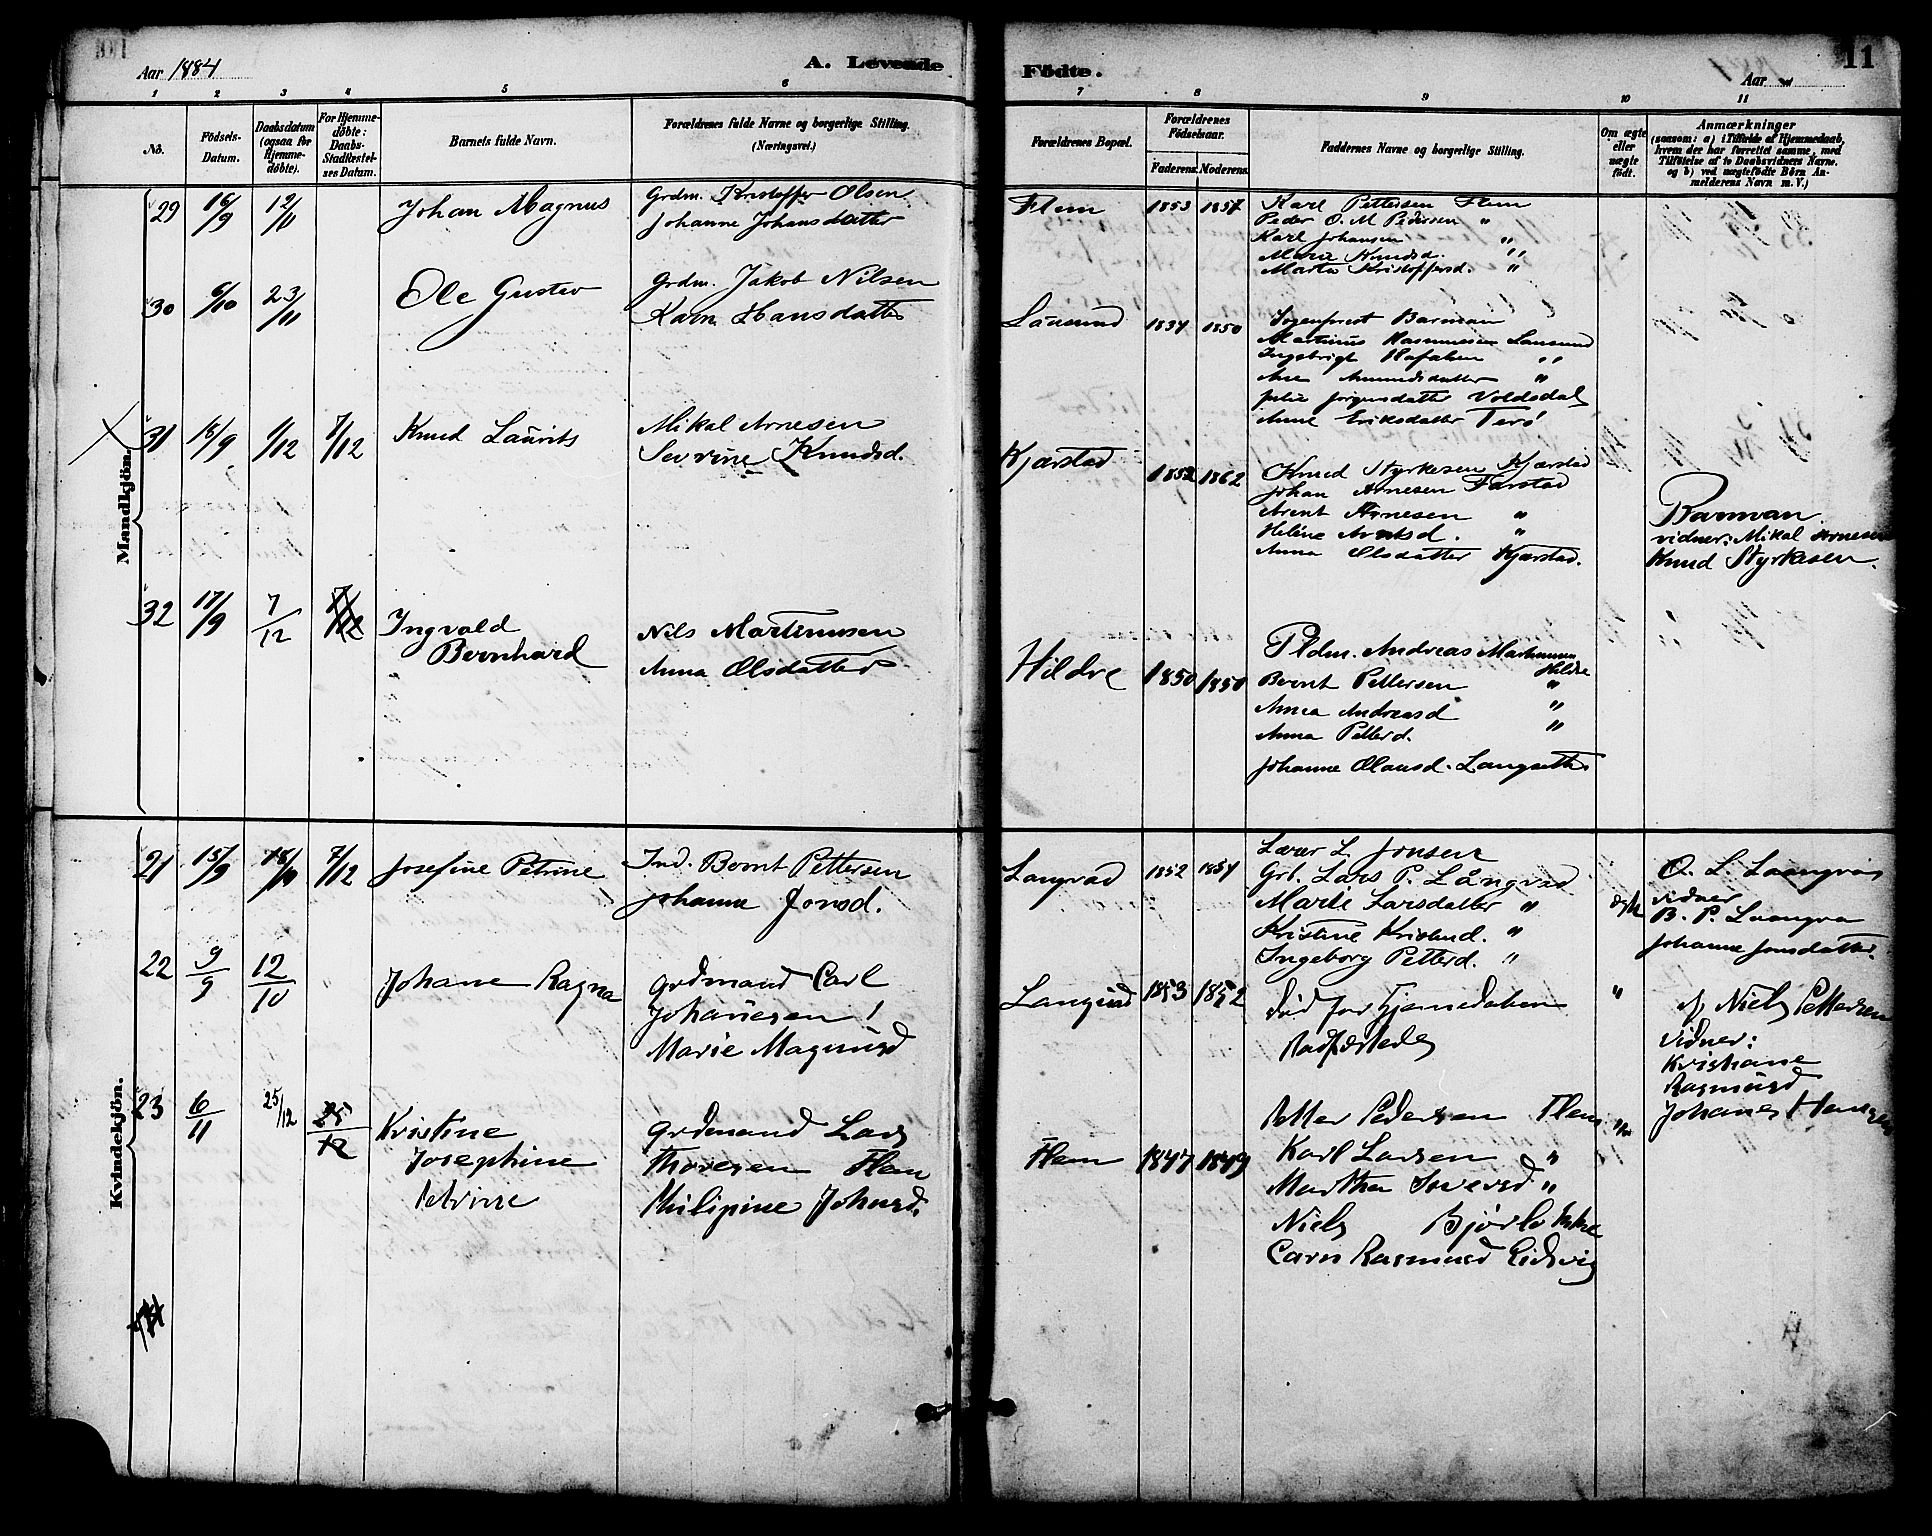 Aar 1884
A. Levende
Födte.
Aar
11
1 2 3 4 5 6 7 8 9 10 11
No.
Födsels-Datum.
Daabsdatum (ogsaa for Hjemme-döbte).
For Hjemme-döbte: Daabs-Stadfæstel-ses Datum.
Barnets fulde Navn.
Forældrenes fulde Navne og borgerlige Stilling.
(Næringsvei.)
Forældrenes Bopæl.
Forældrenes Födselsaar.
Faderens. Moderens.
Faddernes Navne og borgerlige Stilling.
Om ægte eller uægte födt.
Anmærkninger
(saasom: a) i Tilfælde af Hjemmedaab, hvem der har forrettet samme, med Tilföielse af to Daabsvidners Navne. og b) ved uægtefödte Börn An-melderens Navn m. V.)
Mandkjön.
29 16/9 12/11 Johan Magnus
Grdm. Kristoffer Olsen
Johanne Johansdatter
Flem 1853 1857
Karl Pettersen Flem
Peder O. M Pedersen "
Karl Johansen "
Marie Knudsd. "
Marta Kristoffersd. "
30 6/10 23/11 Ole Gustav
Grdm. Jakob Nilsen
Karn Hansdatter
Lausund 1834 1850
Sogneprest Barman
Martinus Rasmussen Lausund
Ingebrigt "
Ane Amundsdatter "
Julie Jörgensdatter Voldsdal
Anne Eriksdatter
31 16/9 1/12 7/12 Knud Laurits
Mikal Arnesen
Sevrine Knudsd.
Kjærstad 1852 1862
Knud Styrkesen Kjærstad
Johan Arnesen Farstad
Arent Arnesen "
Heline Arntsd. "
Anna Olsdatter Kjærstad.
Barman.
vidner: Mikal Arnesen
Knud Styrkesen.
32 17/9 7/12 Ingvald
Bernhard
Nils Martinusen
Anna Olsdatter
Hildre 1850 1850
Pldm. Andreas Martinusen
Hildre
Bernt Pettersen "
Anna Andreasd "
Anna Petterd. "
Johanne Olausd. Langsether
Kvindekjön.
21 15/9 18/10 7/12 Josefine Petrine
Ind. Bernt Pettersen
Johanne Jonsd.
Langvad 1852 1854
Lærer L. Jonsen
Grb. Lars P. Långvad
Marie Larsdatter "
Kristine Kristend. "
Ingeborg Petterd. "
ægte
O. L. Laangvad
vidner
B. P. Laangva
Johanne Jonsdatter.
22 9/9 12/10 Johane Ragna
Grdmand Carl
Johanesen /
Marie Magnusd
1853 1852
Död før Hjemedaben
Stadfæstedes
"
af Niels Pettersen
Vidner:
Kristiane
Rasmusd
Johanes Hansen
23 6/11 25/12 25/12 Kristine
Josephine
Petrine
Grdmand Lars
Thoresen Flem
Philipine Johnsd.
Flem 1847 1849
Petter Pedersen Flem
Karl Larsen "
Martha Iversd "
Niels
Caren Rasmusd Eidsvig
"